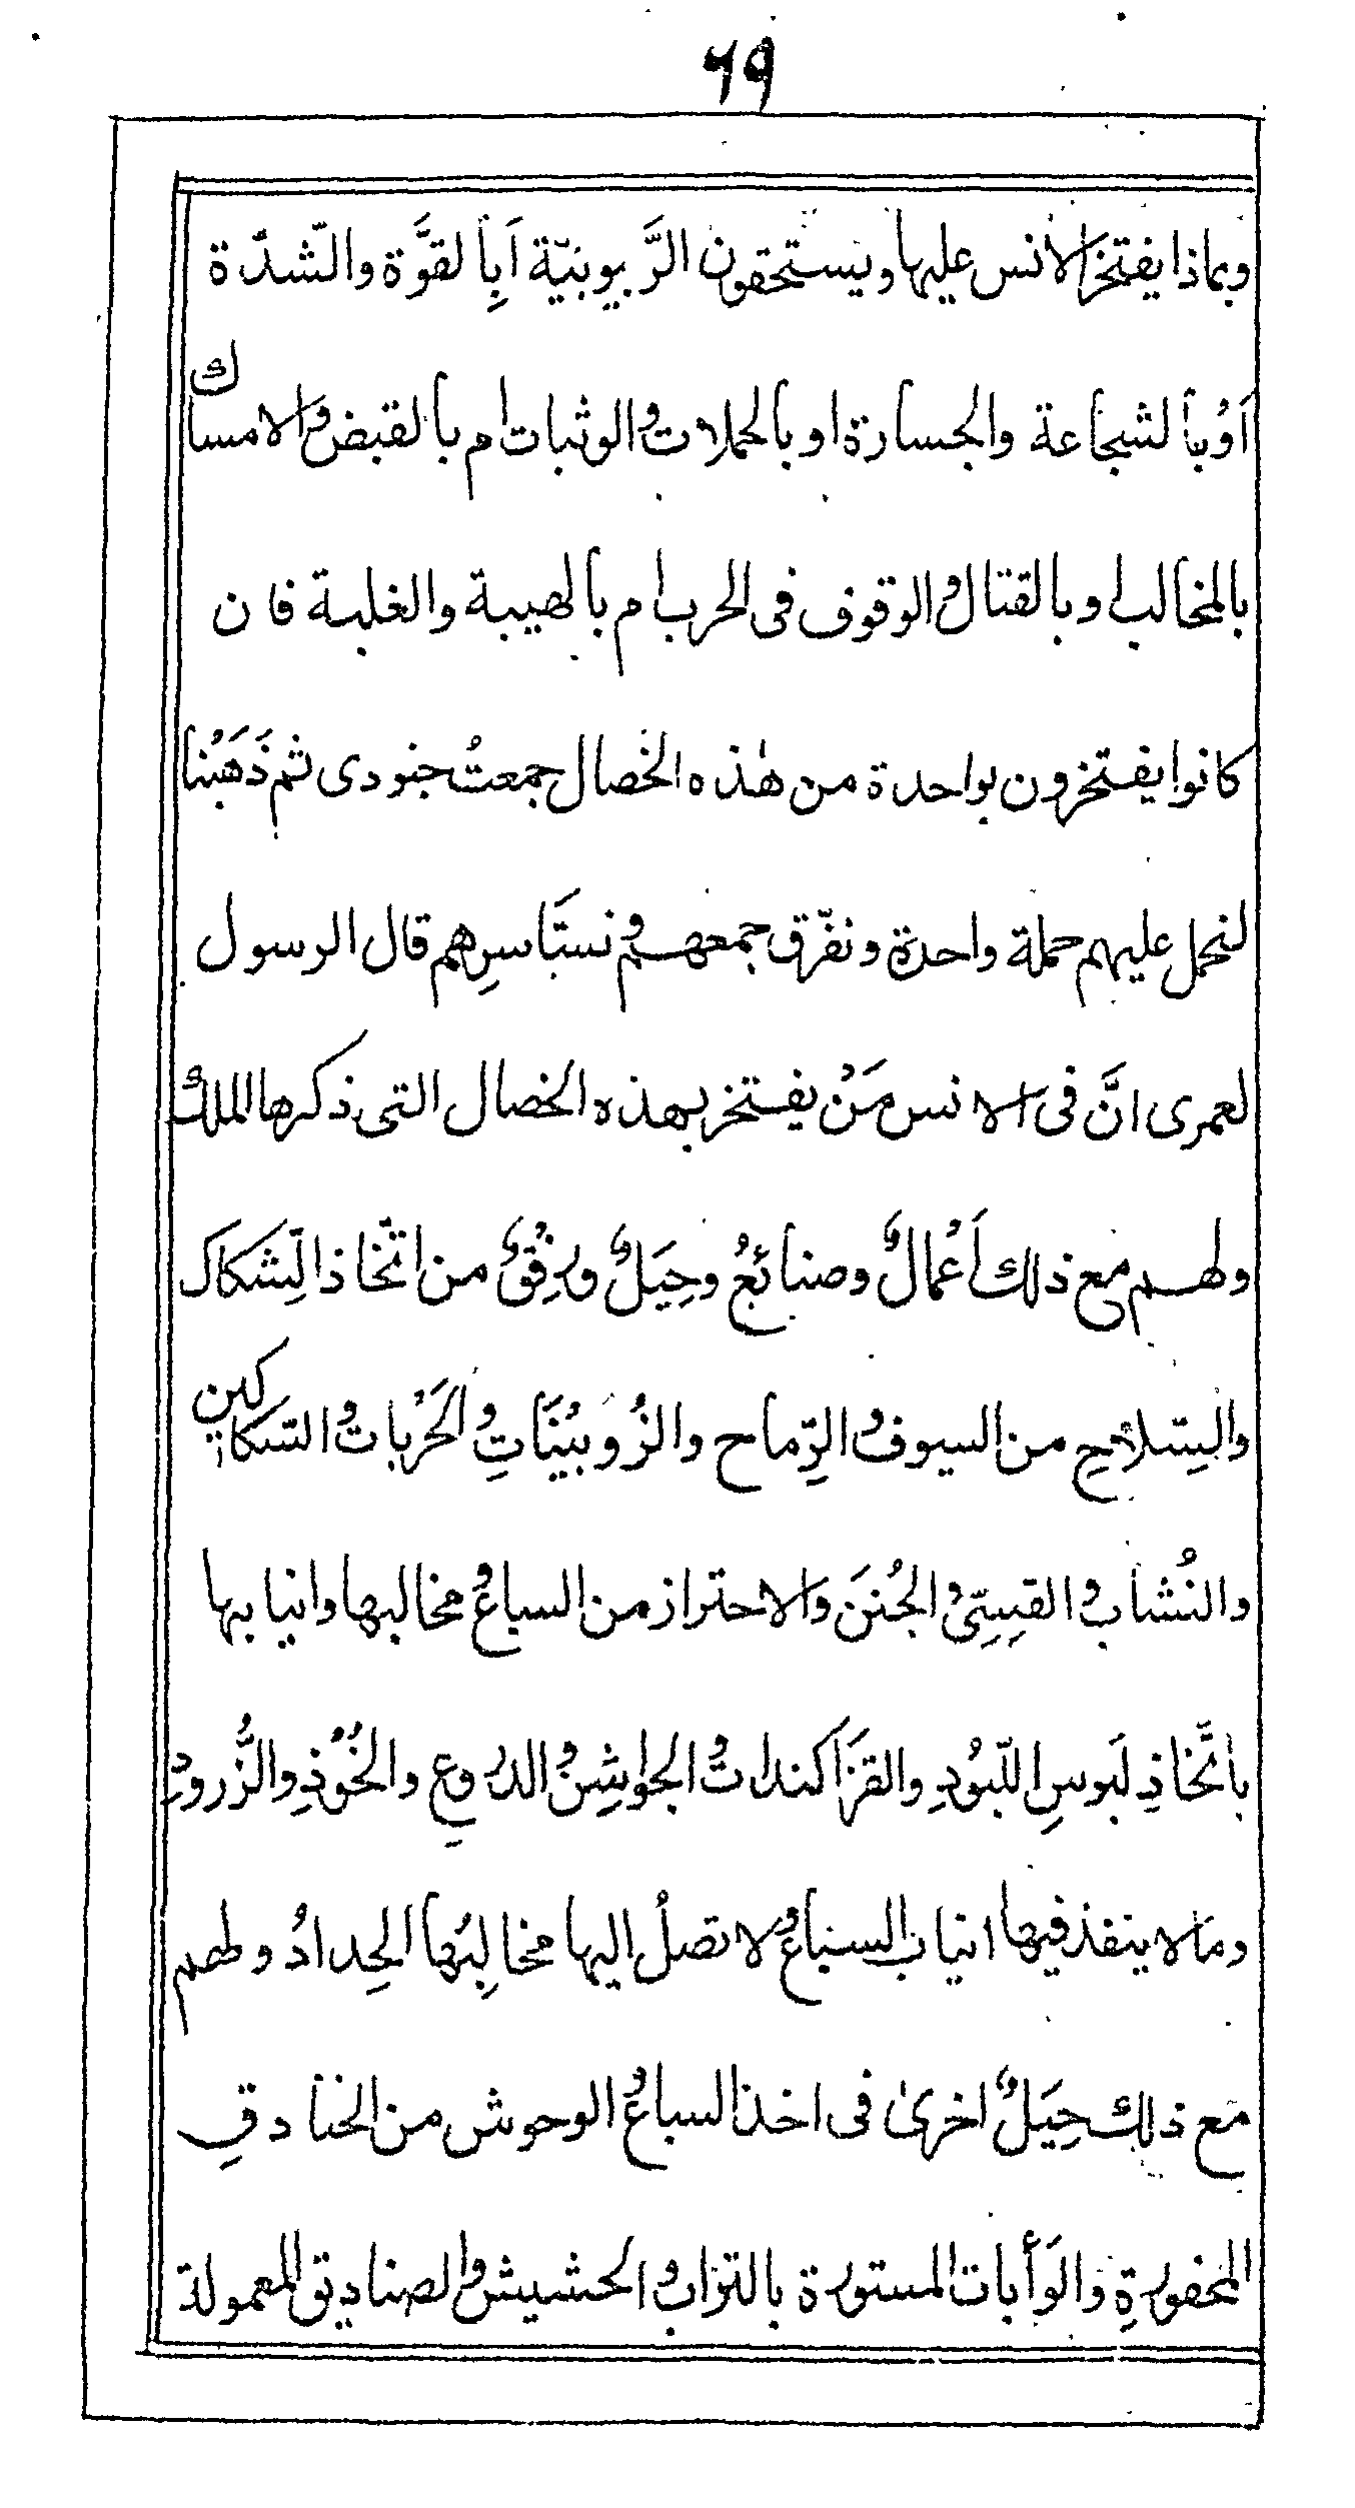 ٦٩
وبماذا يفتخر الانس عليها ويستحقون الرَّبوبيّة اَبِالقوَّة والشّدّة
اَوْ بالشجاعة والجسارة او بالحملات والوثبات ام بالقبض والامساك
بالمخالب او بالقتال والوقوف فى الحرب ام بالهيبة والغلبة فان
كانوا يفتخرون بواحدة من هٰذه الخصال جمعتُ جنودى ثم ذَهَبْنا
لنحمل عليهم حملة واحدة ونفرّق جمعهم ونستَاسرِهم قال الرسول
لعمرى انَّ فى الانس مَنْ يفتخر بهذه الخصال التى ذكرها الملك
ولهم مع ذلك اَعْمالٌ وصنائعُ وحِيَلٌ ورِفْقٌ من اتّخاذ الشِكاك
والسِّلاحِ من السيوف والرِّماح والزُوبيْنَاتِ والحَرْبات والسّكاكين
والنُشاب والقِسِىّ والجُنَن والاحتراز من السباع مخالبها وانيابها
باتّخاذِ لَبوسِ اللّبُودِ والقزَاكندات والجواشِن والدروعِ والخُوْذِ والزُّرودِ
وما لا ينفذ فيها انياب السباع ولا تصلُ اليها مخالِبُها الحِدادُ ولهم
مع ذلك حِيَلٌ اخرىٰ فى اخذ السباع والوحوش من الخنادقِ
المحفورةِ والوَأبات المستورة بالتراب والحشيش والصناديق المعمولة